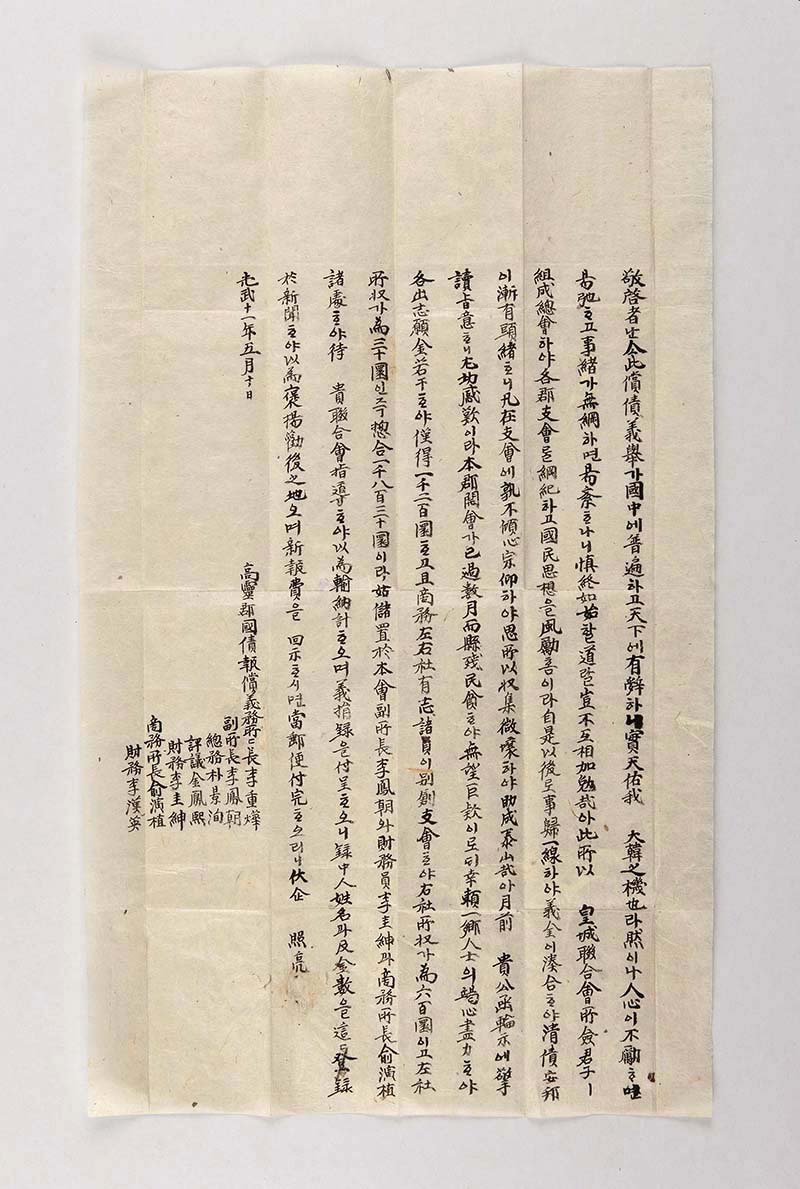 敬啓者난 今此償債義舉가 國中에 普遍하고 天下에 有辭하니 實天佑我 大韓之機也라 然이나 人心이 不勵하면
易弛하고 事緖가 無綱하면 易紊하나니 愼終如始할 道랄 豈不互相加勉哉아 此所以 皇城聯合會所僉君子ㅣ
組成總會하야 各郡支會를 綱紀하고 國民思想을 風勵홈이라 自是以後로 事歸一線하야 義金이 湊合하야 淸債安邦
이 漸有頭緖하니 凡在支會에 孰不傾心宗仰하야 思所以收集微壤하야 助成泰山哉아 月前 貴公函輪示에 擎
讀旨意하니 尤功感歎이라 本郡開會가 已過數月而縣殘民貧하야 無望巨款이로되 幸賴一鄕人士의 竭心盡力하야
各出志願金若干하야 僅得一千二百圜하고 且商務左右社有志諸員이 別創支會하야 右社所收가 爲六百圜이고 左社
所收가 爲三十圜인즉 總合一千八百三十圜이라 姑儲置於本會副所長李鳳朝와 財務員李圭紳과 商務所長俞演植
諸處하야 待 貴聯合會指導하야 以爲輸納計하오며 義捐錄을 付呈하오니 錄中人姓名과 及金數을 這這登錄
於新聞하야 以爲褒揚勸後之地오며 新報費을 回示하시면 當郵便付完하오리니 伏企 照亮
光武十一年五月十日
高靈郡國債報償義務所所長李重燁
副所長李鳳朝
總務朴景洵
評議金鳳熙
財務李圭紳
商務所長俞演植
財務李漢英